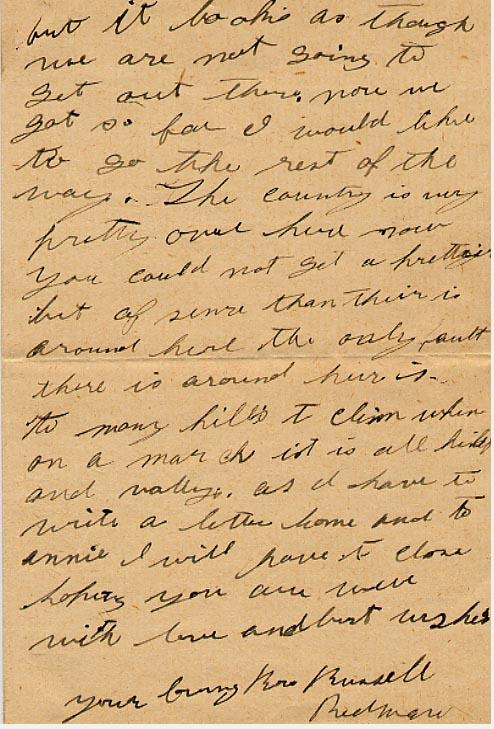 but it looks as though
we are not going to
get out there, now we
got so far I would like
to go the rest of the
way. The country is very
pretty over here now
you could not get a prettier
bit of senre than their is
around here the only fault
there is around heir is
to many hills t clim when
on a march it is all hills
and vallys. as I have to
write a letter home and to
annie I will have t close
hoping you are well
with love and best wishes
your loving Bro Russell
Redman